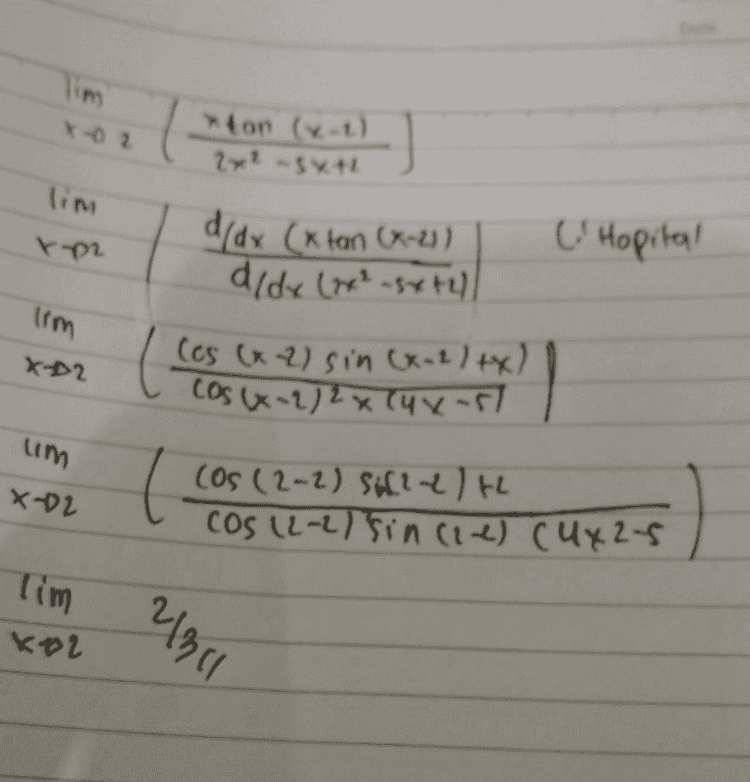 lim x→2 ( x tan (x-2) / 2x² - 5x+2 )
lim x→2 ( d/dx (x tan (x-2)) / d/dx (2x² - 5x+2) ) L' Hopital
lim x→2 ( cos (x-2) sin (x-2) + x) / cos (x-2)² x (4x-5) )
lim x→2 ( cos (2-2) sin(2-2) +2 / cos (2-2) sin (2-2) (4x2-5 )
lim x→2 2/3 //